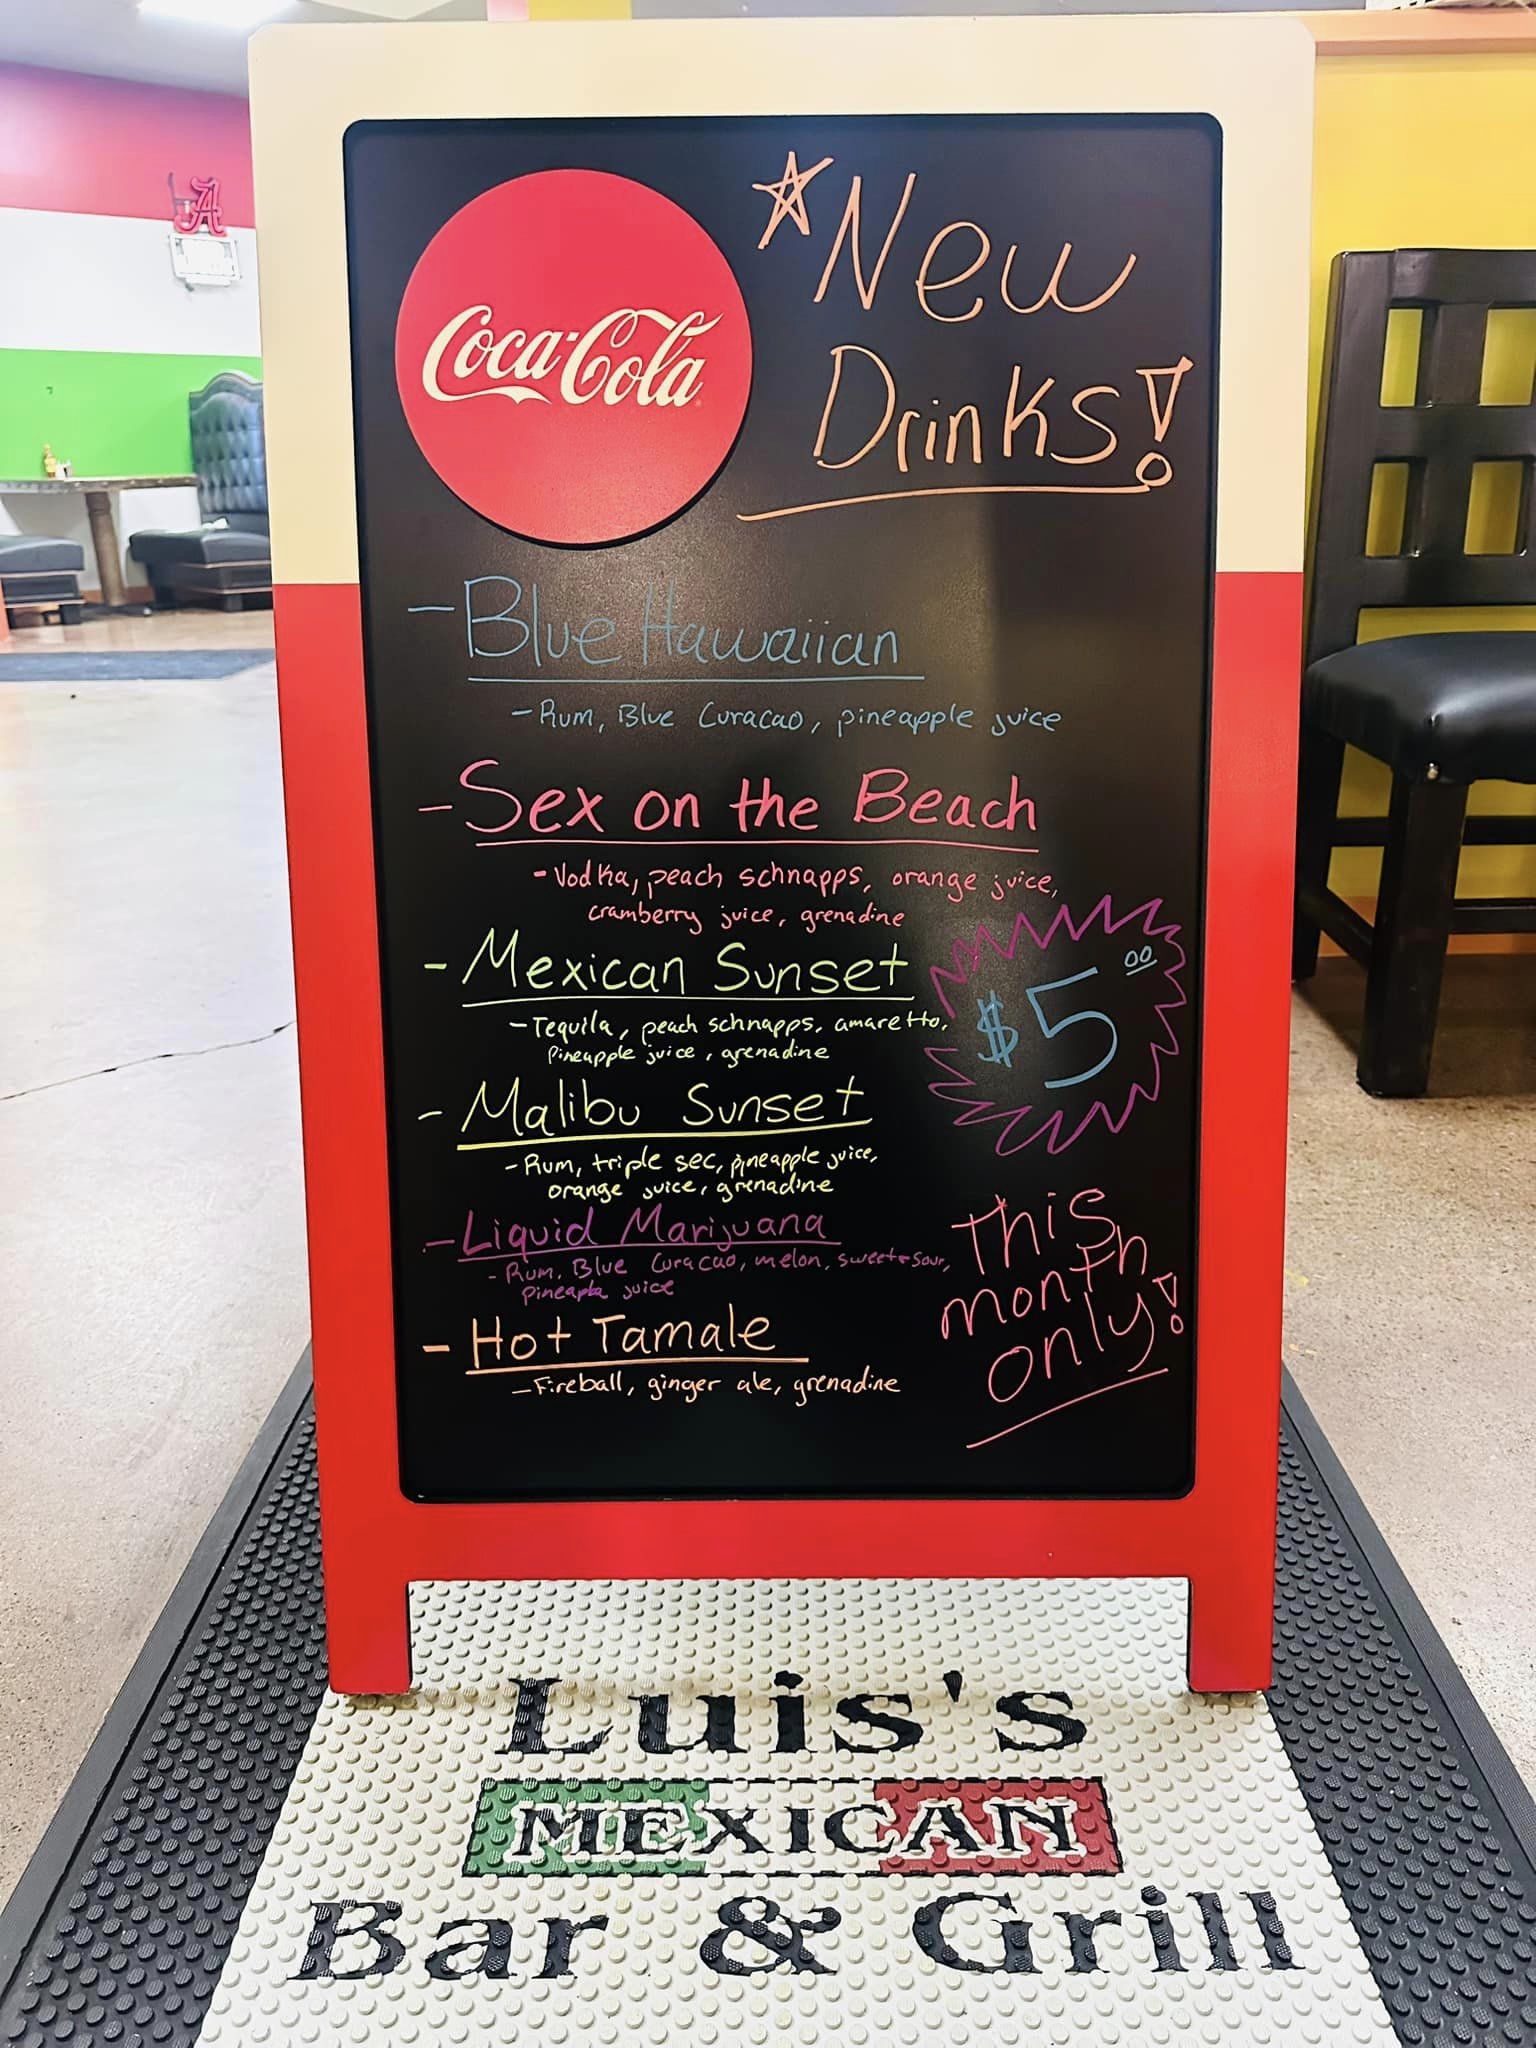 Coca-Cola
*New
Drinks!
- Blue Hawaiian
- Rum, Blue Curacao, pineapple juice
- Sex on the Beach
- Vodka, peach schnapps, orange juice,
cramberry juice, grenadine
- Mexican Sunset
- Tequila, peach schnapps, amaretto,
pineapple juice, grenadine
$5.00
- Malibu Sunset
- Rum, triple sec, pineapple juice,
orange juice, grenadine
- Liquid Marijuana
- Rum, Blue Curacao, melon, sweet + sour,
juice
- Hot Tamale
- Fireball, ginger ale, grenadine
This
month
only!
Luis's
MEXICAN
Bar & Grill